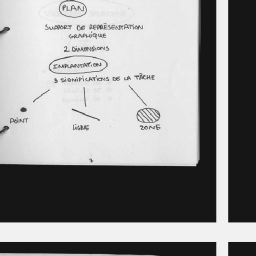 PLAN
SUPPORT DE REPRÉSENTATION
GRAPHIQUE
2 DIMENSIONS
IMPLANTATION
3 SIGNIFICATIONS DE LA TÂCHE
POINT
LIGNE
ZONE